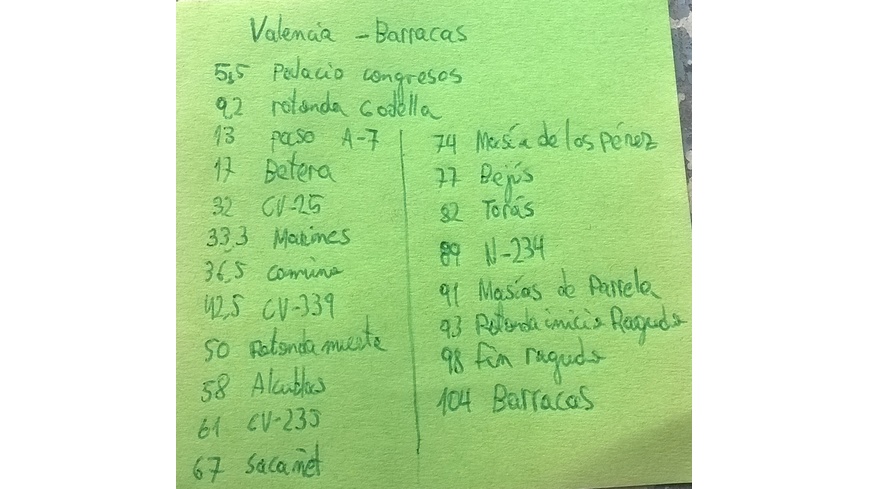 Valencia - Barracas
5,5 Palacio congresos
9,2 rotonda Godella
13 paso A-7
17 Betera
32 CV-25
33,3 Marines
36,5 camino
42,5 CV-339
50 Rotonda muerta
58 Alcublas
61 CV-235
67 Sacañet
74 Masía de los Pérez
77 Bejís
82 Torás
89 N-234
91 Masías de Parrela
93 Rotonda inicio Ragudo
98 Fin ragudo
104 Barracas